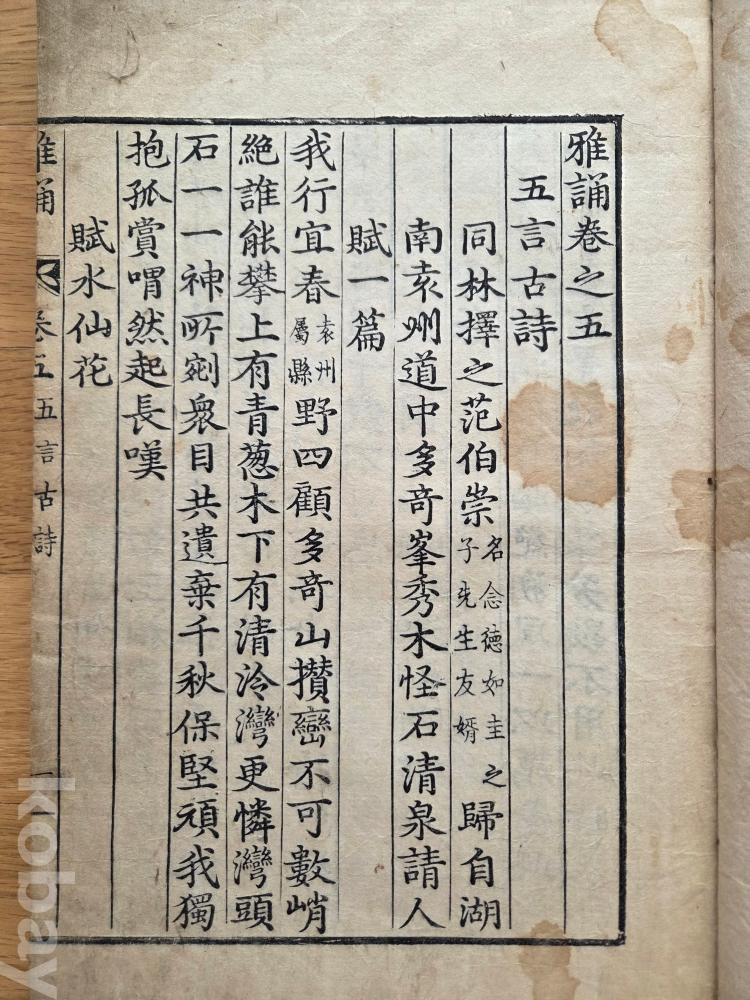 雅誦卷之五
五言古詩
同林擇之范伯崇名念德如圭之子先生友婿歸自湖
南袁州道中多竒峯秀木怪石清泉請人
賦一篇
我行宜春袁州屬縣野四顧多竒山攢巒不可數峭
絶誰能攀上有青葱木下有清泠灣更憐灣頭
石一一神所剜衆目共遺棄千秋保堅頑我獨
抱孤賞喟然起長嘆
賦水仙花
雅誦 卷五 五言古詩 一
kobay